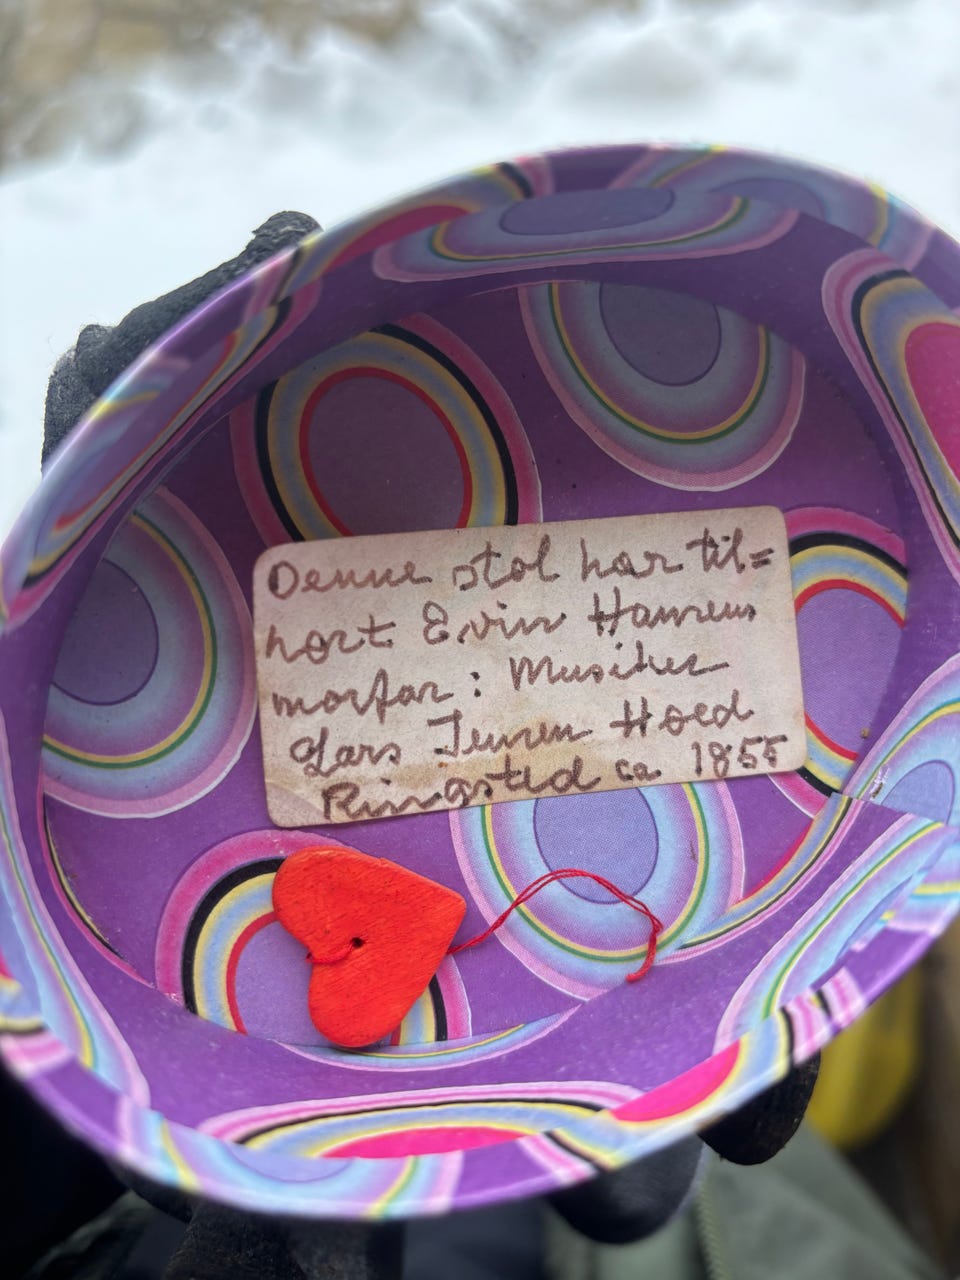 Denne stol har til=
hørt Ervin Hansens
morfar: Musiker
Lars Jensen Hoed
Ringsted ca 1855